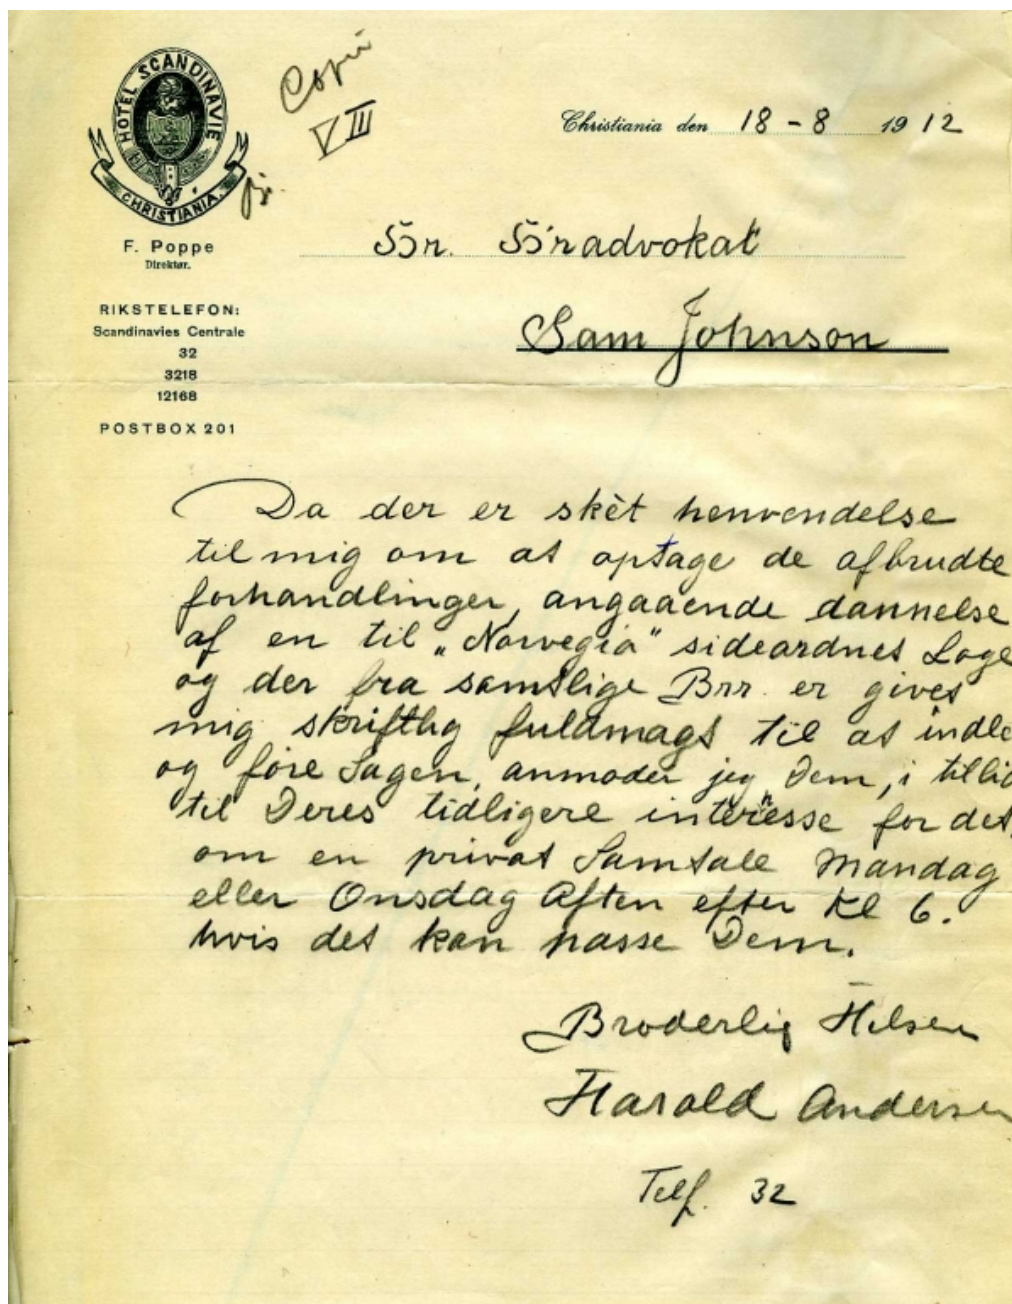 HOTEL SCANDINAVIE
CHRISTIANIA.
Copi
VIII
Christiania den 18 - 8 1912
F. Poppe
Direktør.
Hr. Høiradvokat
Sam Johnson
RIKSTELEFON:
Scandinavies Centrale
32
3218
12168
POSTBOX 201
Da der er skèt henvendelse
til mig om at optage de afbrudte
forhandlinger, angaaende dannelse
af en til „Norvegia" sideordnet Loge
og der fra samtlige Brr. er givet
mig skriftlig fuldmagt til at indle
og føre Sagen, anmoder jeg Dem, i tillid
til Deres tidligere interesse for det,
om en privat Samtale Mandag
eller Onsdag Aften efter Kl 6.
hvis det kan passe Dem.
Broderlig Hilsen
Harold Andersen
Telf. 32